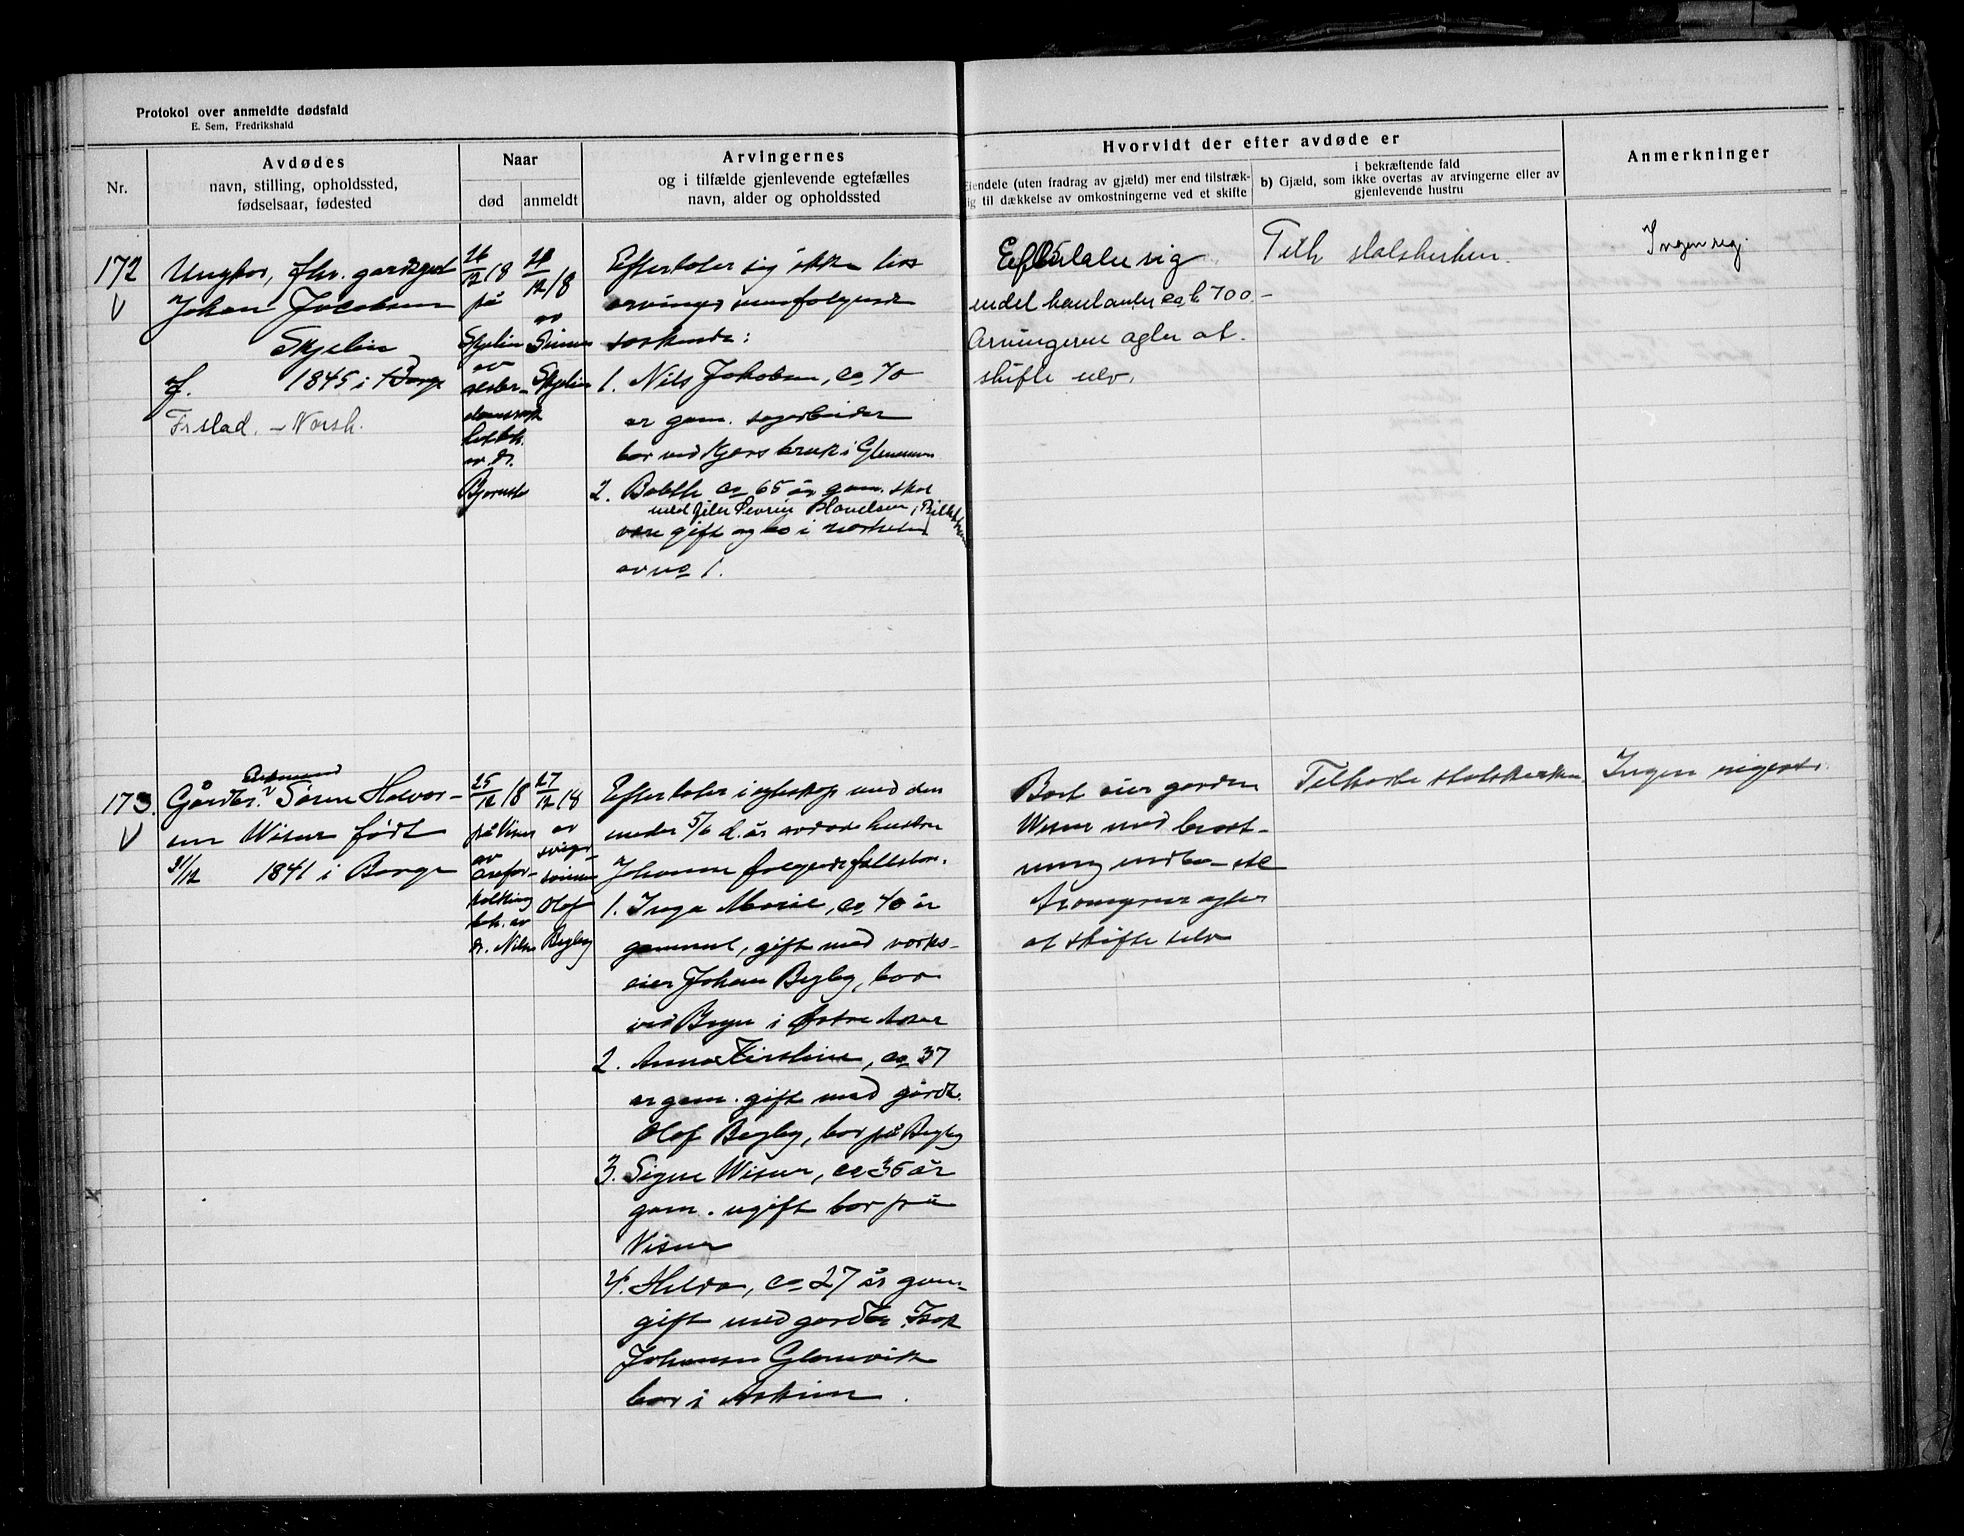 Protokol over anmeldte dødsfald
E. Sem, Fredrikshald
Nr.
Avdødes
navn, stilling, opholdssted,
fødselsaar, fødested
Naar
død
anmeldt
Arvingernes
og i tilfælde gjenlevende egtefælles
navn, alder og opholdssted
Hvorvidt der efter avdøde er
Eiendele (uten fradrag av gjæld) mer end tilstræk-
lig til dækkelse av omkostningerne ved et skifte
i bekræftende fald
b) Gjæld, som ikke overtas av arvingerne eller av
gjenlevende hustru
Anmerkninger
172
V
Ungkar, fhv. gardsgut
Johan Jacobsen
Skjelin
f. 1845 i Borge
Fr.stad. – Norsk.
26/12 18
på
Skjelin
av
alder-
doms
av dr.
28/12 18
av
Skjelin
Efterlater sig ikke livs
arvinger men følgende
søskende:
1. Nils Jakobsen, ca 70
år gam. sagarbeider
bor ved Kjærs bruk i Glemmen
2. Bolette ca 65 år gam. skal
være gift og bo i nærheten
av no 1.
Efterlater sig
endel kontanter ca kr 700.-
Arvingerne agter at
skifte selv.
Tilh. statskirken.
Ingen reg.
173.
V
Gårdbr. Søren Halvor-
sen Wisur født
31/12 1841 i Borge
25/12 18
på Visur
av
årefor-
kalkning
bek. av
dr. Nilsen
27/12 18
av
sviger-
sønnen
Olaf
Begby
Efterlater i egteskap med den
under 5/6 d. år avdøde hustru
Johanne følgende fællesbørn.
1. Inga Marie, ca 40 år
gammel, gift med verks-
eier Johan Begby, bor
ved Bryn i Østre Aker
2. Anna Kirstine, ca 37
år gam. gift med gårdbr.
Olaf Begby, bor på Begby
3. Signe Wisur, ca 35 år
gam. ugift bor på
Visur
4. Hilda, ca 27 år gam.
gift med gårdbr. Isak
Johansen Glenvik
bor i Askim.
Boet eier gården
Wisur med besæt-
ning indbo – etc
Arvingerne agter
at skifte selv
Tilhørte statskirken.
Ingen registr.